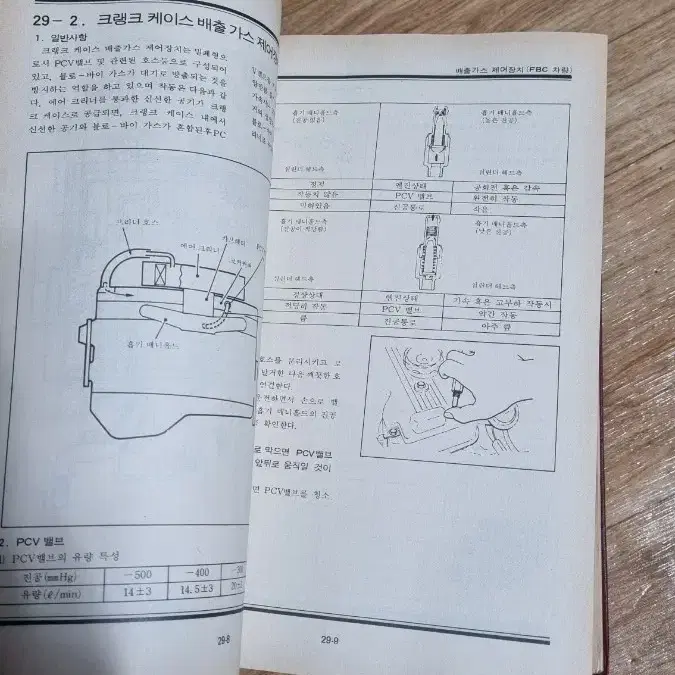 29-2. 크랭크 케이스 배출 가스 제어장
1. 일반사항
크랭크 케이스 배출가스 제어장치는 밀폐형으
로서 PCV밸브 및 관련된 호스등으로 구성되어
있고, 블로-바이 가스가 대기로 방출되는 것을
방지하는 역할을 하고 있으며 작동은 다음과 같
다. 에어 크리너를 통과한 신선한 공기가 크랭
크 케이스로 공급되면, 크랭크 케이스 내에서
신선한 공기와 블로-바이 가스가 혼합된후 PC
크리너 호스
에어 크리너
흡기 매니홀드
2. PCV 밸브
1) PCV밸브의 유량 특성
진공(mmHg) -500 -400
유량(ℓ/min) 14±3 14.5±3
29-8
배출가스 제어장치(FBC 차량)
흡기 매니홀드측 흡기 매니홀드측
(높은 진공)
실린더 헤드측 실린더 헤드측
정지 엔진상태 공회전 혹은 감속
작동치 않음 PCV 밸브 완전히 작동
막혀있음 진공통로 작음
흡기 매니홀드측 흡기 매니홀드측
(낮은 진공)
실린더 헤드측 실린더 헤드측
정상상태 엔진상태 가속 혹은 고부하 작동시
적당히 작동 PCV 밸브 약간 작동
큼 진공통로 아주 큼
호스를 분리시키고 로
다음 깨끗한 호
연결한다.
운전하면서 손으로 밸
흡기 매니홀드의 진공
를 확인한다.
로 막으면 PCV밸브
앞뒤로 움직일 것이
면 PCV밸브를 청소
29-9